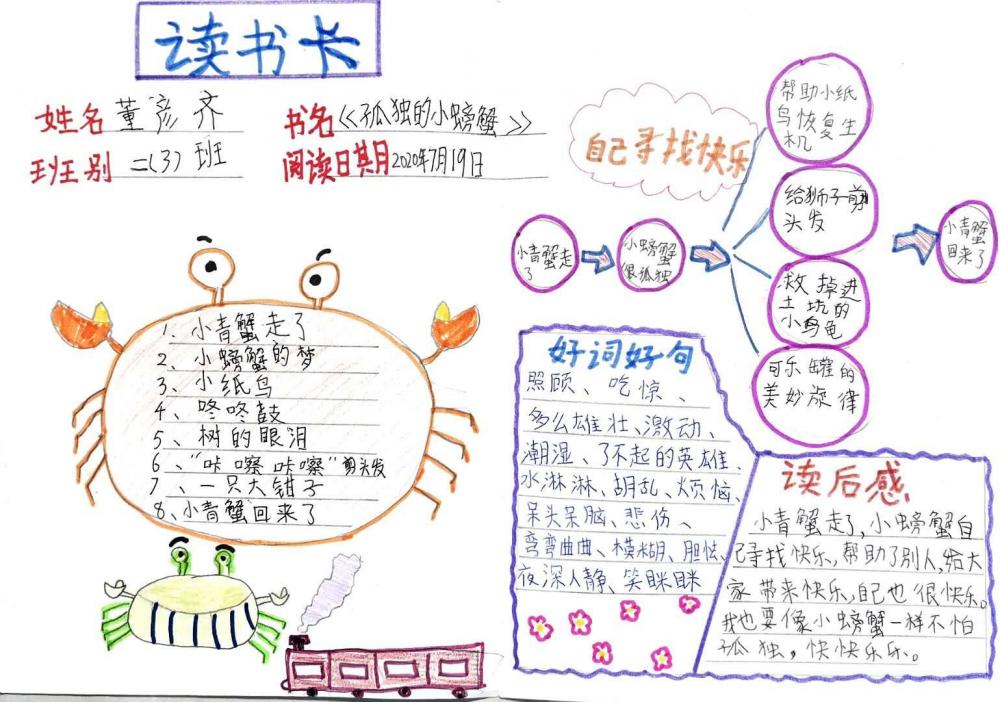 读书卡
姓名 董彦齐
书名《孤独的小螃蟹》
班别 二(3)班
阅读日期 2020年7月19日
1、小青蟹走了
2、小螃蟹的梦
3、小纸鸟
4、咚咚鼓
5、树的眼泪
6、“咔嚓咔嚓”剪头发
7、一只大钳子
8、小青蟹回来了
自己寻找快乐
小青蟹走
了
小螃蟹
很孤独
帮助小纸
鸟恢复生
机
给狮子剪
头发
救掉进
土坑的
小乌龟
可乐罐的
美妙旋律
小青蟹
回来了
好词好句
照顾、吃惊、
多么雄壮、激动、
潮湿、了不起的英雄、
水淋淋、胡乱、烦恼、
呆头呆脑、悲伤、
弯弯曲曲、模糊、胆怯、
夜深人静、笑眯眯
读后感
小青蟹走了,小螃蟹自
己寻找快乐,帮助了别人,给大
家带来快乐,自己也很快乐。
我也要像小螃蟹一样不怕
孤独,快快乐乐。